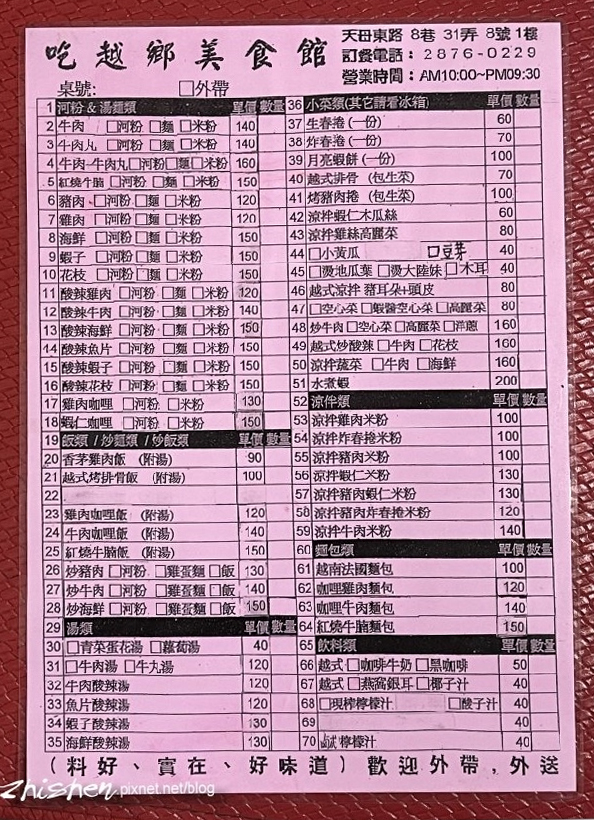 吃越鄉美食館
天母東路 8巷 31弄 8號 1樓
訂餐電話：2876-0229
營業時間：AM10:00~PM09:30
桌號: □外帶
1 河粉 & 湯麵類 單價 數量
2 牛肉 □河粉 □麵 □米粉 140
3 牛肉丸 □河粉 □麵 □米粉 140
4 牛肉-牛肉丸 □河粉 □麵 □米粉 160
5 紅燒牛腩 □河粉 □麵 □米粉 150
6 豬肉 □河粉 □麵 □米粉 120
7 雞肉 □河粉 □麵 □米粉 120
8 海鮮 □河粉 □麵 □米粉 150
9 蝦子 □河粉 □麵 □米粉 150
10 花枝 □河粉 □麵 □米粉 150
11 酸辣雞肉 □河粉 □麵 □米粉 120
12 酸辣牛肉 □河粉 □麵 □米粉 140
13 酸辣海鮮 □河粉 □麵 □米粉 150
14 酸辣魚片 □河粉 □麵 □米粉 150
15 酸辣蝦子 □河粉 □麵 □米粉 150
16 酸辣花枝 □河粉 □麵 □米粉 150
17 雞肉咖哩 □河粉 □米粉 130
18 蝦仁咖哩 □河粉 □米粉 150
19 飯類 / 炒麵類 / 炒飯類 單價 數量
20 香茅雞肉飯 (附湯) 90
21 越式烤排骨飯 (附湯) 100
22
23 雞肉咖哩飯 (附湯) 120
24 牛肉咖哩飯 (附湯) 140
25 紅燒牛腩飯 (附湯) 150
26 炒豬肉 □河粉 □雞蛋麵 □飯 130
27 炒牛肉 □河粉 □雞蛋麵 □飯 140
28 炒海鮮 □河粉 □雞蛋麵 □飯 150
29 湯類 單價 數量
30 □青菜蛋花湯 □蘿蔔湯 40
31 □牛肉湯 □牛丸湯 120
32 牛肉酸辣湯 120
33 魚片酸辣湯 120
34 蝦子酸辣湯 130
35 海鮮酸辣湯 130
36 小菜類(其它請看冰箱) 單價 數量
37 生春捲 (一份) 60
38 炸春捲 (一份) 70
39 月亮蝦餅 (一份) 100
40 越式排骨 (包生菜) 70
41 烤豬肉捲 (包生菜) 100
42 涼拌蝦仁木瓜絲 60
43 涼拌雞絲高麗菜 80
44 □小黃瓜 □豆芽 40
45 □燙地瓜葉 □燙大陸妹 □木耳 40
46 越式涼拌 豬耳朵+頭皮 80
47 □空心菜 □蝦醬空心菜 □高麗菜 80
48 炒牛肉 □空心菜 □高麗菜 □洋蔥 160
49 越式炒酸辣 □牛肉 □花枝 160
50 涼拌蔬菜 □牛肉 □海鮮 160
51 水煮蝦 200
52 涼伴類 單價 數量
53 涼拌雞肉米粉 100
54 涼拌炸春捲米粉 100
55 涼拌豬肉米粉 100
56 涼拌蝦仁米粉 130
57 涼拌豬肉蝦仁米粉 130
58 涼拌豬肉炸春捲米粉 120
59 涼拌牛肉米粉 140
60 麵包類 單價 數量
61 越南法國麵包 100
62 咖哩雞肉麵包 120
63 咖哩牛肉麵包 140
64 紅燒牛腩麵包 150
65 飲料類 單價 數量
66 越式 □咖啡牛奶 □黑咖啡 50
67 越式 □燕窩銀耳 □椰子汁 40
68 □現榨檸檬汁 □酸子汁 40
69 40
70 鹹檸檬汁 40
(料好、實在、好味道) 歡迎外帶,外送
zhishen.pixnet.net/blog